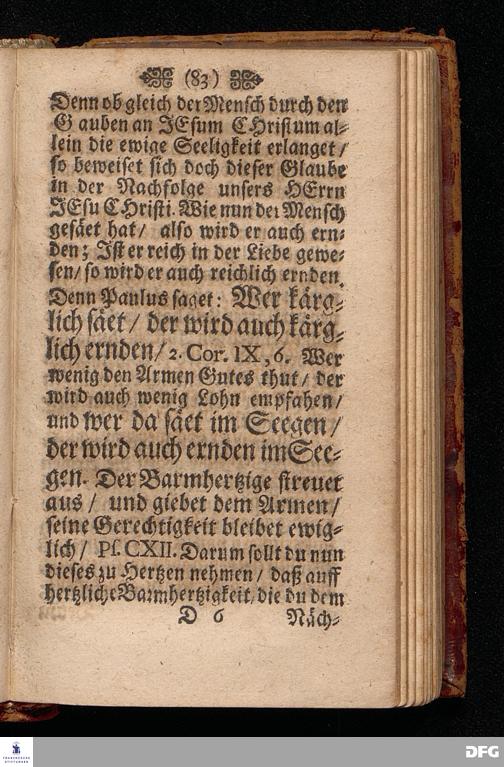 (83)
Denn ob gleich der Mensch durch den
G auben an JEsum CHristum al⸗
lein die ewige Seeligkeit erlanget /
so beweiset sich doch dieser Glaube
in der Nachfolge unsers HErrn
JEsu CHristi. Wie nun der Mensch
gesäet hat / also wird er auch ern⸗
den; Ist er reich in der Liebe gewe⸗
sen / so wird er auch reichlich ernden.
Denn Paulus saget: Wer kärg⸗
lich säet / der wird auch kärg⸗
lich ernden / 2. Cor. IX, 6. Wer
wenig den Armen Gutes thut / der
wird auch wenig Lohn empfahen /
und wer da säet im Seegen /
der wird auch ernden im See⸗
gen. Der Barmhertzige streuet
aus / und giebet dem Armen /
seine Gerechtigkeit bleibet ewig⸗
lich / Ps. CXII. Darum sollt du nun
dieses zu Hertzen nehmen / daß auff
hertzliche Barmhertzigkeit, die du dem
D 6 Näch⸗
FRANCKESCHE
STIFTUNGEN
DFG